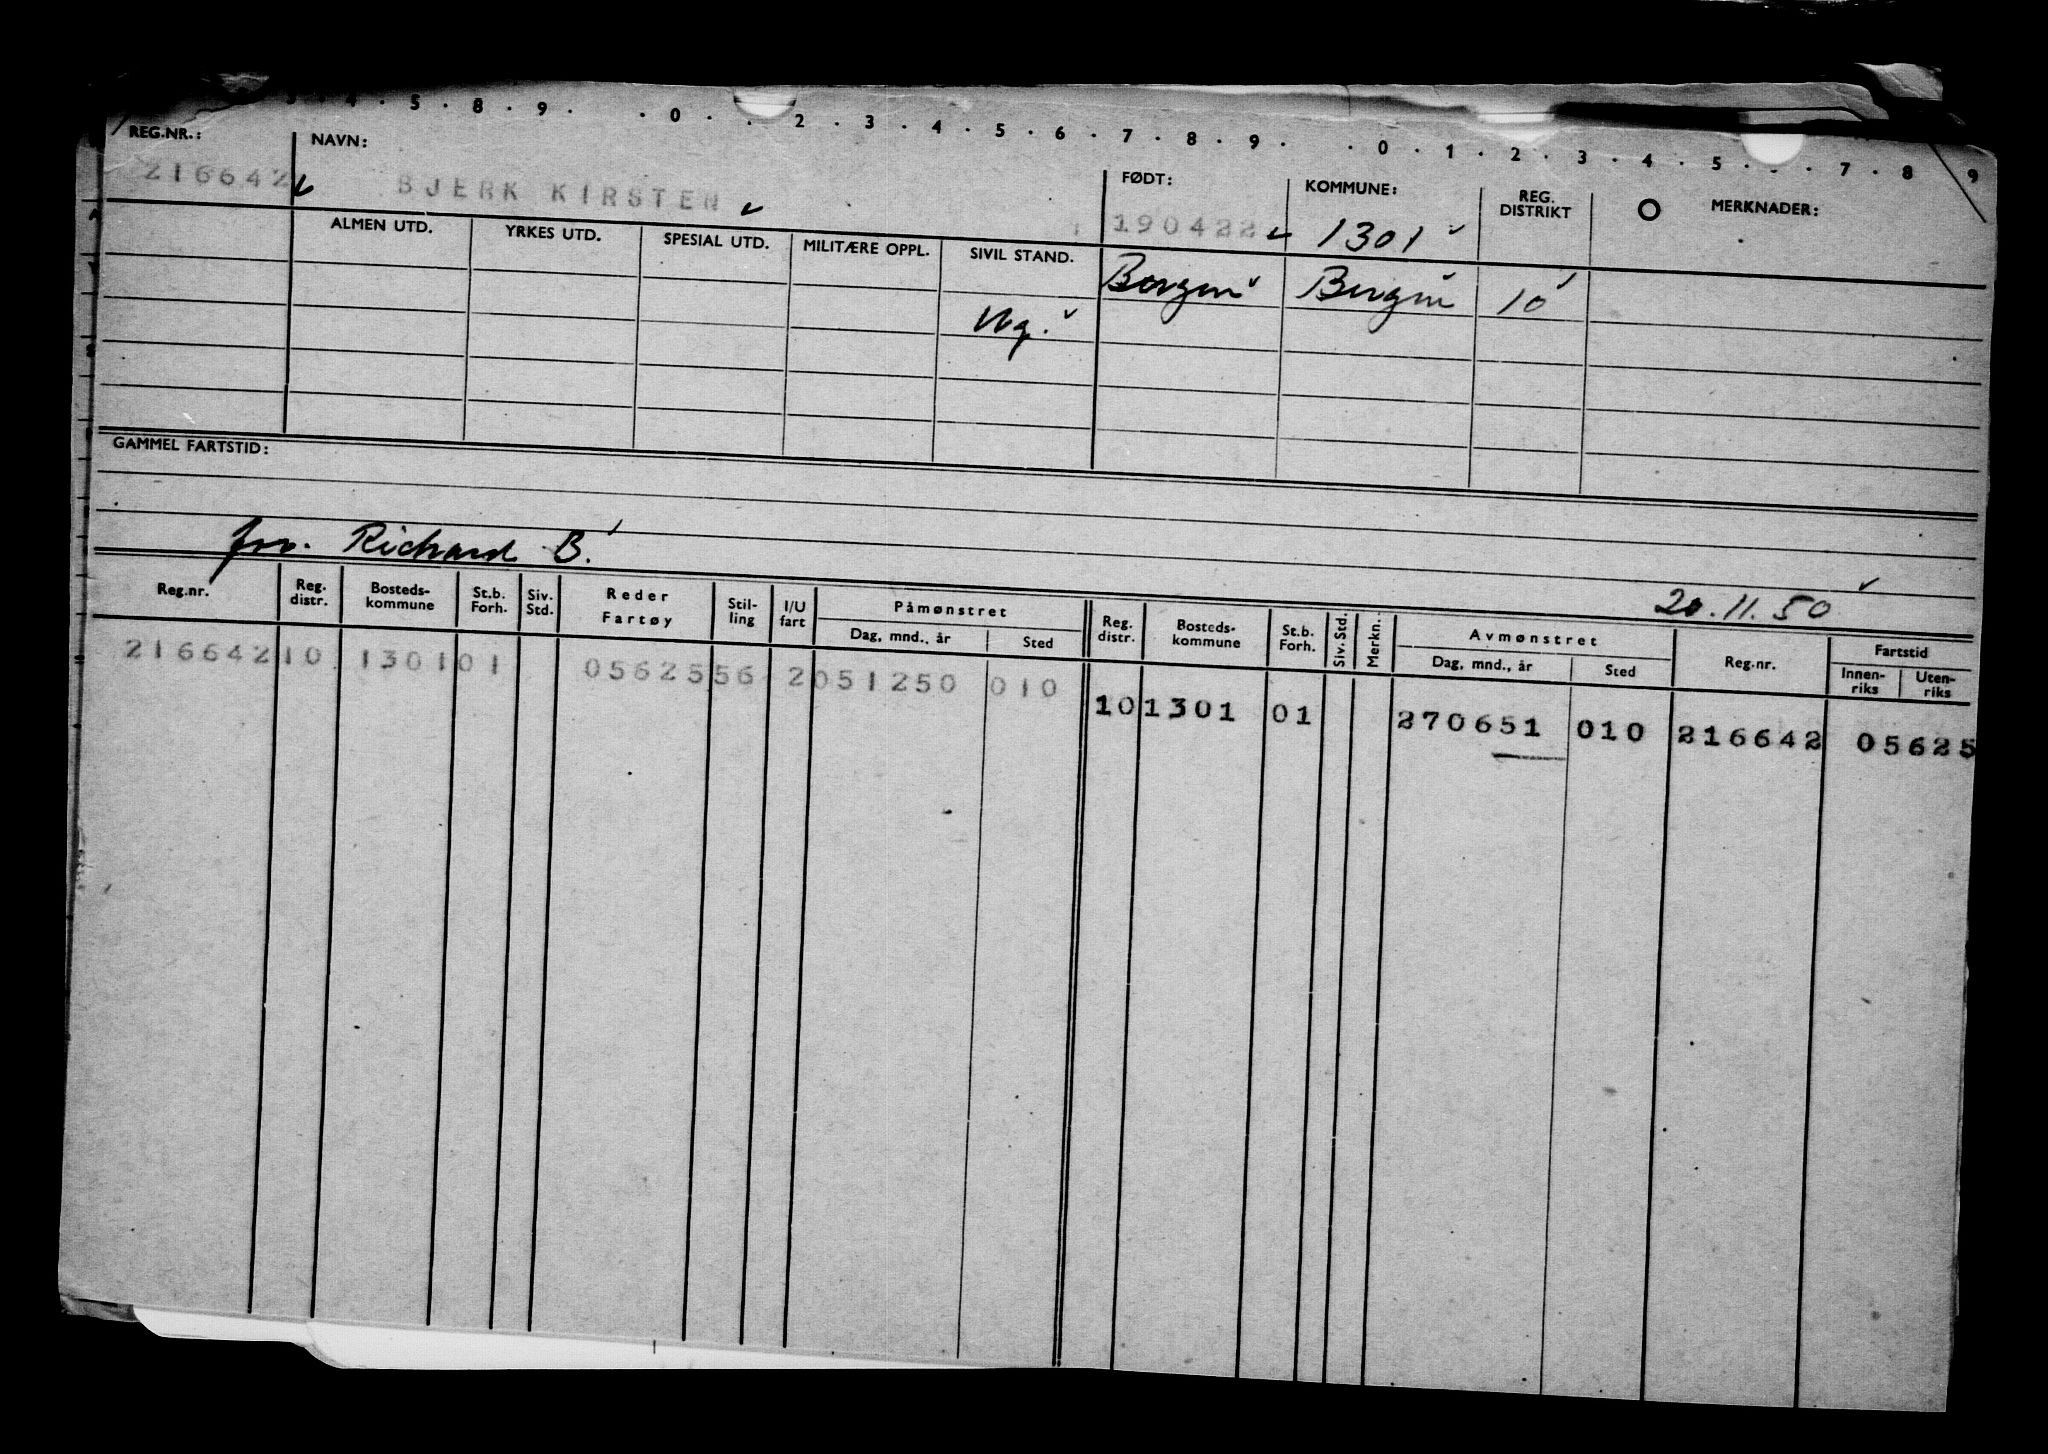 3 . 4 . 5 . 8 . 9 . . 0 . . 2 . 3 . 4 . 5 . 6 . 7 . 8 . 9 . . 0 . 1 . 2 . 3 . 4 . 5 . . 7 . 8 9
REG.NR.: NAVN: FØDT: KOMMUNE: REG. DISTRIKT O MERKNADER:
216642 BJERK KIRSTEN 190422 1301
ALMEN UTD. YRKES UTD. SPESIAL UTD. MILITÆRE OPPL. SIVIL STAND.
Bergen Bergen 10
Ug.
GAMMEL FARTSTID:
frv. Richard B.
20.11.50
Reg.nr. Reg. distr. Bosteds-kommune St.b. Forh. Siv. Std. Reder Fartøy Stil-ling I/U fart Påmønstret Dag, mnd., år Sted Reg. distr. Bosteds-kommune St.b. Forh. Siv. Std. Merkn. Avmønstret Dag, mnd., år Sted Reg.nr. Fartstid Innen-riks Uten-riks
216642 10 1301 01 05625 56 2 051250 010
10 1301 01 270651 010 216642 05625